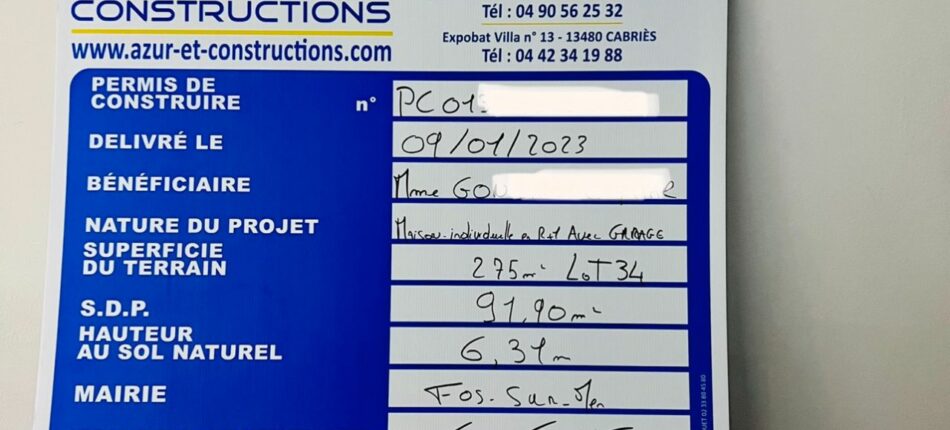 CONSTRUCTIONS
www.azur-et-constructions.com
Tél : 04 90 56 25 32
Expobat Villa n° 13 - 13480 CABRIÈS
Tél : 04 42 34 19 88
PERMIS DE
CONSTRUIRE n° PC 01
DELIVRÉ LE 09/01/2023
BÉNÉFICIAIRE Mme GO
NATURE DU PROJET Maison individuelle en R+1 Avec GARAGE
SUPERFICIE
DU TERRAIN 275m² LOT 34
S.D.P. 91,90m²
HAUTEUR
AU SOL NATUREL 6,31m
MAIRIE Fos-Sur-Mer